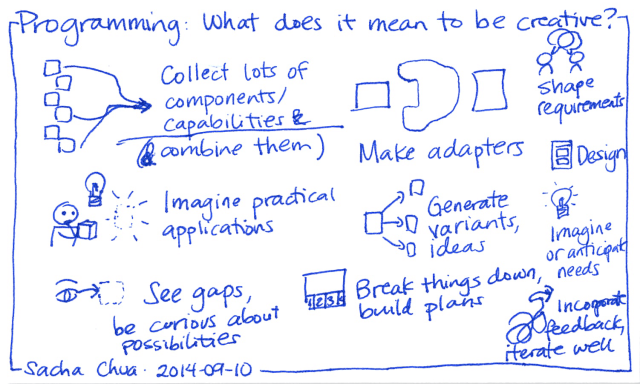 Programming: What does it mean to be creative?
Collect lots of
components/
capabilities &
(& combine them)
Make adapters
shape
requirements
Design
Imagine practical
applications
Generate
variants,
ideas
Imagine
or anticipate
needs
See gaps,
be curious about
possibilities
1234
Break things down,
build plans
Incorporate
feedback,
iterate well
Sacha Chua · 2014-09-10